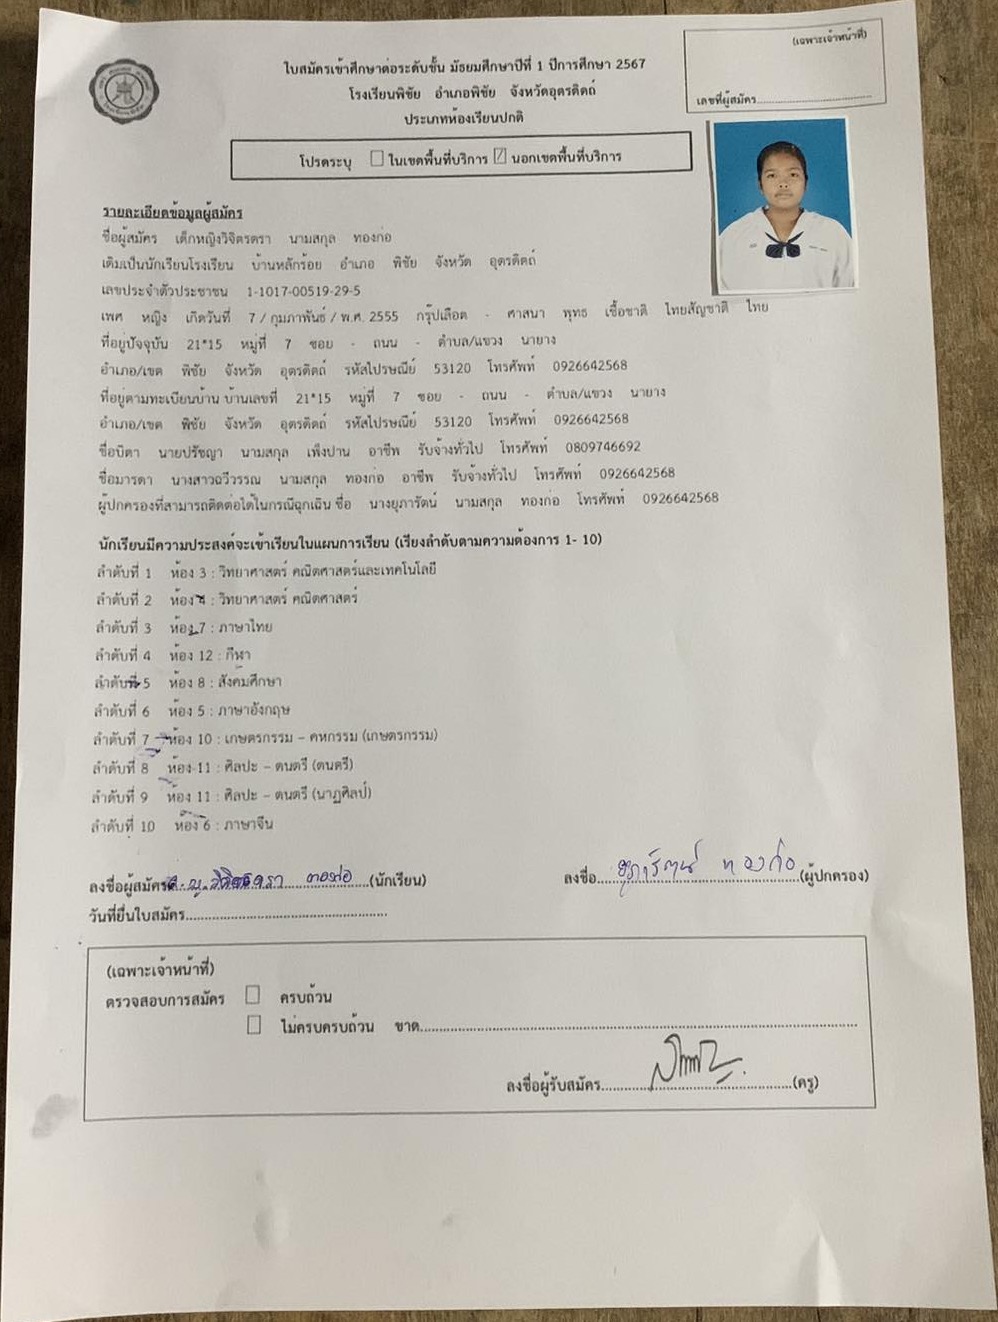 (เฉพาะเจ้าหน้าที่)
เลขที่ผู้สมัคร
ใบสมัครเข้าศึกษาต่อระดับชั้น มัธยมศึกษาปีที่ 1 ปีการศึกษา 2567
โรงเรียนพิชัย อำเภอพิชัย จังหวัดอุตรดิตถ์
ประเภทห้องเรียนปกติ
โปรดระบุ ☐ ในเขตพื้นที่บริการ ☑ นอกเขตพื้นที่บริการ
รายละเอียดข้อมูลผู้สมัคร
ชื่อผู้สมัคร เด็กหญิงวิจิตรตรา นามสกุล ทองก่อ
เดิมเป็นนักเรียนโรงเรียน บ้านหลักร้อย อำเภอ พิชัย จังหวัด อุตรดิตถ์
เลขประจำตัวประชาชน 1-1017-00519-29-5
เพศ หญิง เกิดวันที่ 7 / กุมภาพันธ์ / พ.ศ. 2555 กรุ๊ปเลือด - ศาสนา พุทธ เชื้อชาติ ไทยสัญชาติ ไทย
ที่อยู่ปัจจุบัน 21*15 หมู่ที่ 7 ซอย - ถนน - ตำบล/แขวง นายาง
อำเภอ/เขต พิชัย จังหวัด อุตรดิตถ์ รหัสไปรษณีย์ 53120 โทรศัพท์ 0926642568
ที่อยู่ตามทะเบียนบ้าน บ้านเลขที่ 21*15 หมู่ที่ 7 ซอย - ถนน - ตำบล/แขวง นายาง
อำเภอ/เขต พิชัย จังหวัด อุตรดิตถ์ รหัสไปรษณีย์ 53120 โทรศัพท์ 0926642568
ชื่อบิดา นายปรัชญา นามสกุล เพ็งปาน อาชีพ รับจ้างทั่วไป โทรศัพท์ 0809746692
ชื่อมารดา นางสาวฉวีวรรณ นามสกุล ทองก่อ อาชีพ รับจ้างทั่วไป โทรศัพท์ 0926642568
ผู้ปกครองที่สามารถติดต่อได้ในกรณีฉุกเฉิน ชื่อ นางยุภารัตน์ นามสกุล ทองก่อ โทรศัพท์ 0926642568
นักเรียนมีความประสงค์จะเข้าเรียนในแผนการเรียน (เรียงลำดับตามความต้องการ 1- 10)
ลำดับที่ 1 ห้อง 3 : วิทยาศาสตร์ คณิตศาสตร์และเทคโนโลยี
ลำดับที่ 2 ห้อง 4 : วิทยาศาสตร์ คณิตศาสตร์
ลำดับที่ 3 ห้อง 7 : ภาษาไทย
ลำดับที่ 4 ห้อง 12 : กีฬา
ลำดับที่ 5 ห้อง 8 : สังคมศึกษา
ลำดับที่ 6 ห้อง 5 : ภาษาอังกฤษ
ลำดับที่ 7 ห้อง 10 : เกษตรกรรม – คหกรรม (เกษตรกรรม)
ลำดับที่ 8 ห้อง 11 : ศิลปะ – ดนตรี (ดนตรี)
ลำดับที่ 9 ห้อง 11 : ศิลปะ – ดนตรี (นาฏศิลป์)
ลำดับที่ 10 ห้อง 6 : ภาษาจีน
ลงชื่อผู้สมัคร ทองก่อ (นักเรียน) ลงชื่อ ยุภารัตน์ ทองก่อ (ผู้ปกครอง)
วันที่ยื่นใบสมัคร
(เฉพาะเจ้าหน้าที่)
ตรวจสอบการสมัคร ☐ ครบถ้วน
☐ ไม่ครบครบถ้วน ขาด
ลงชื่อผู้รับสมัคร (ครู)